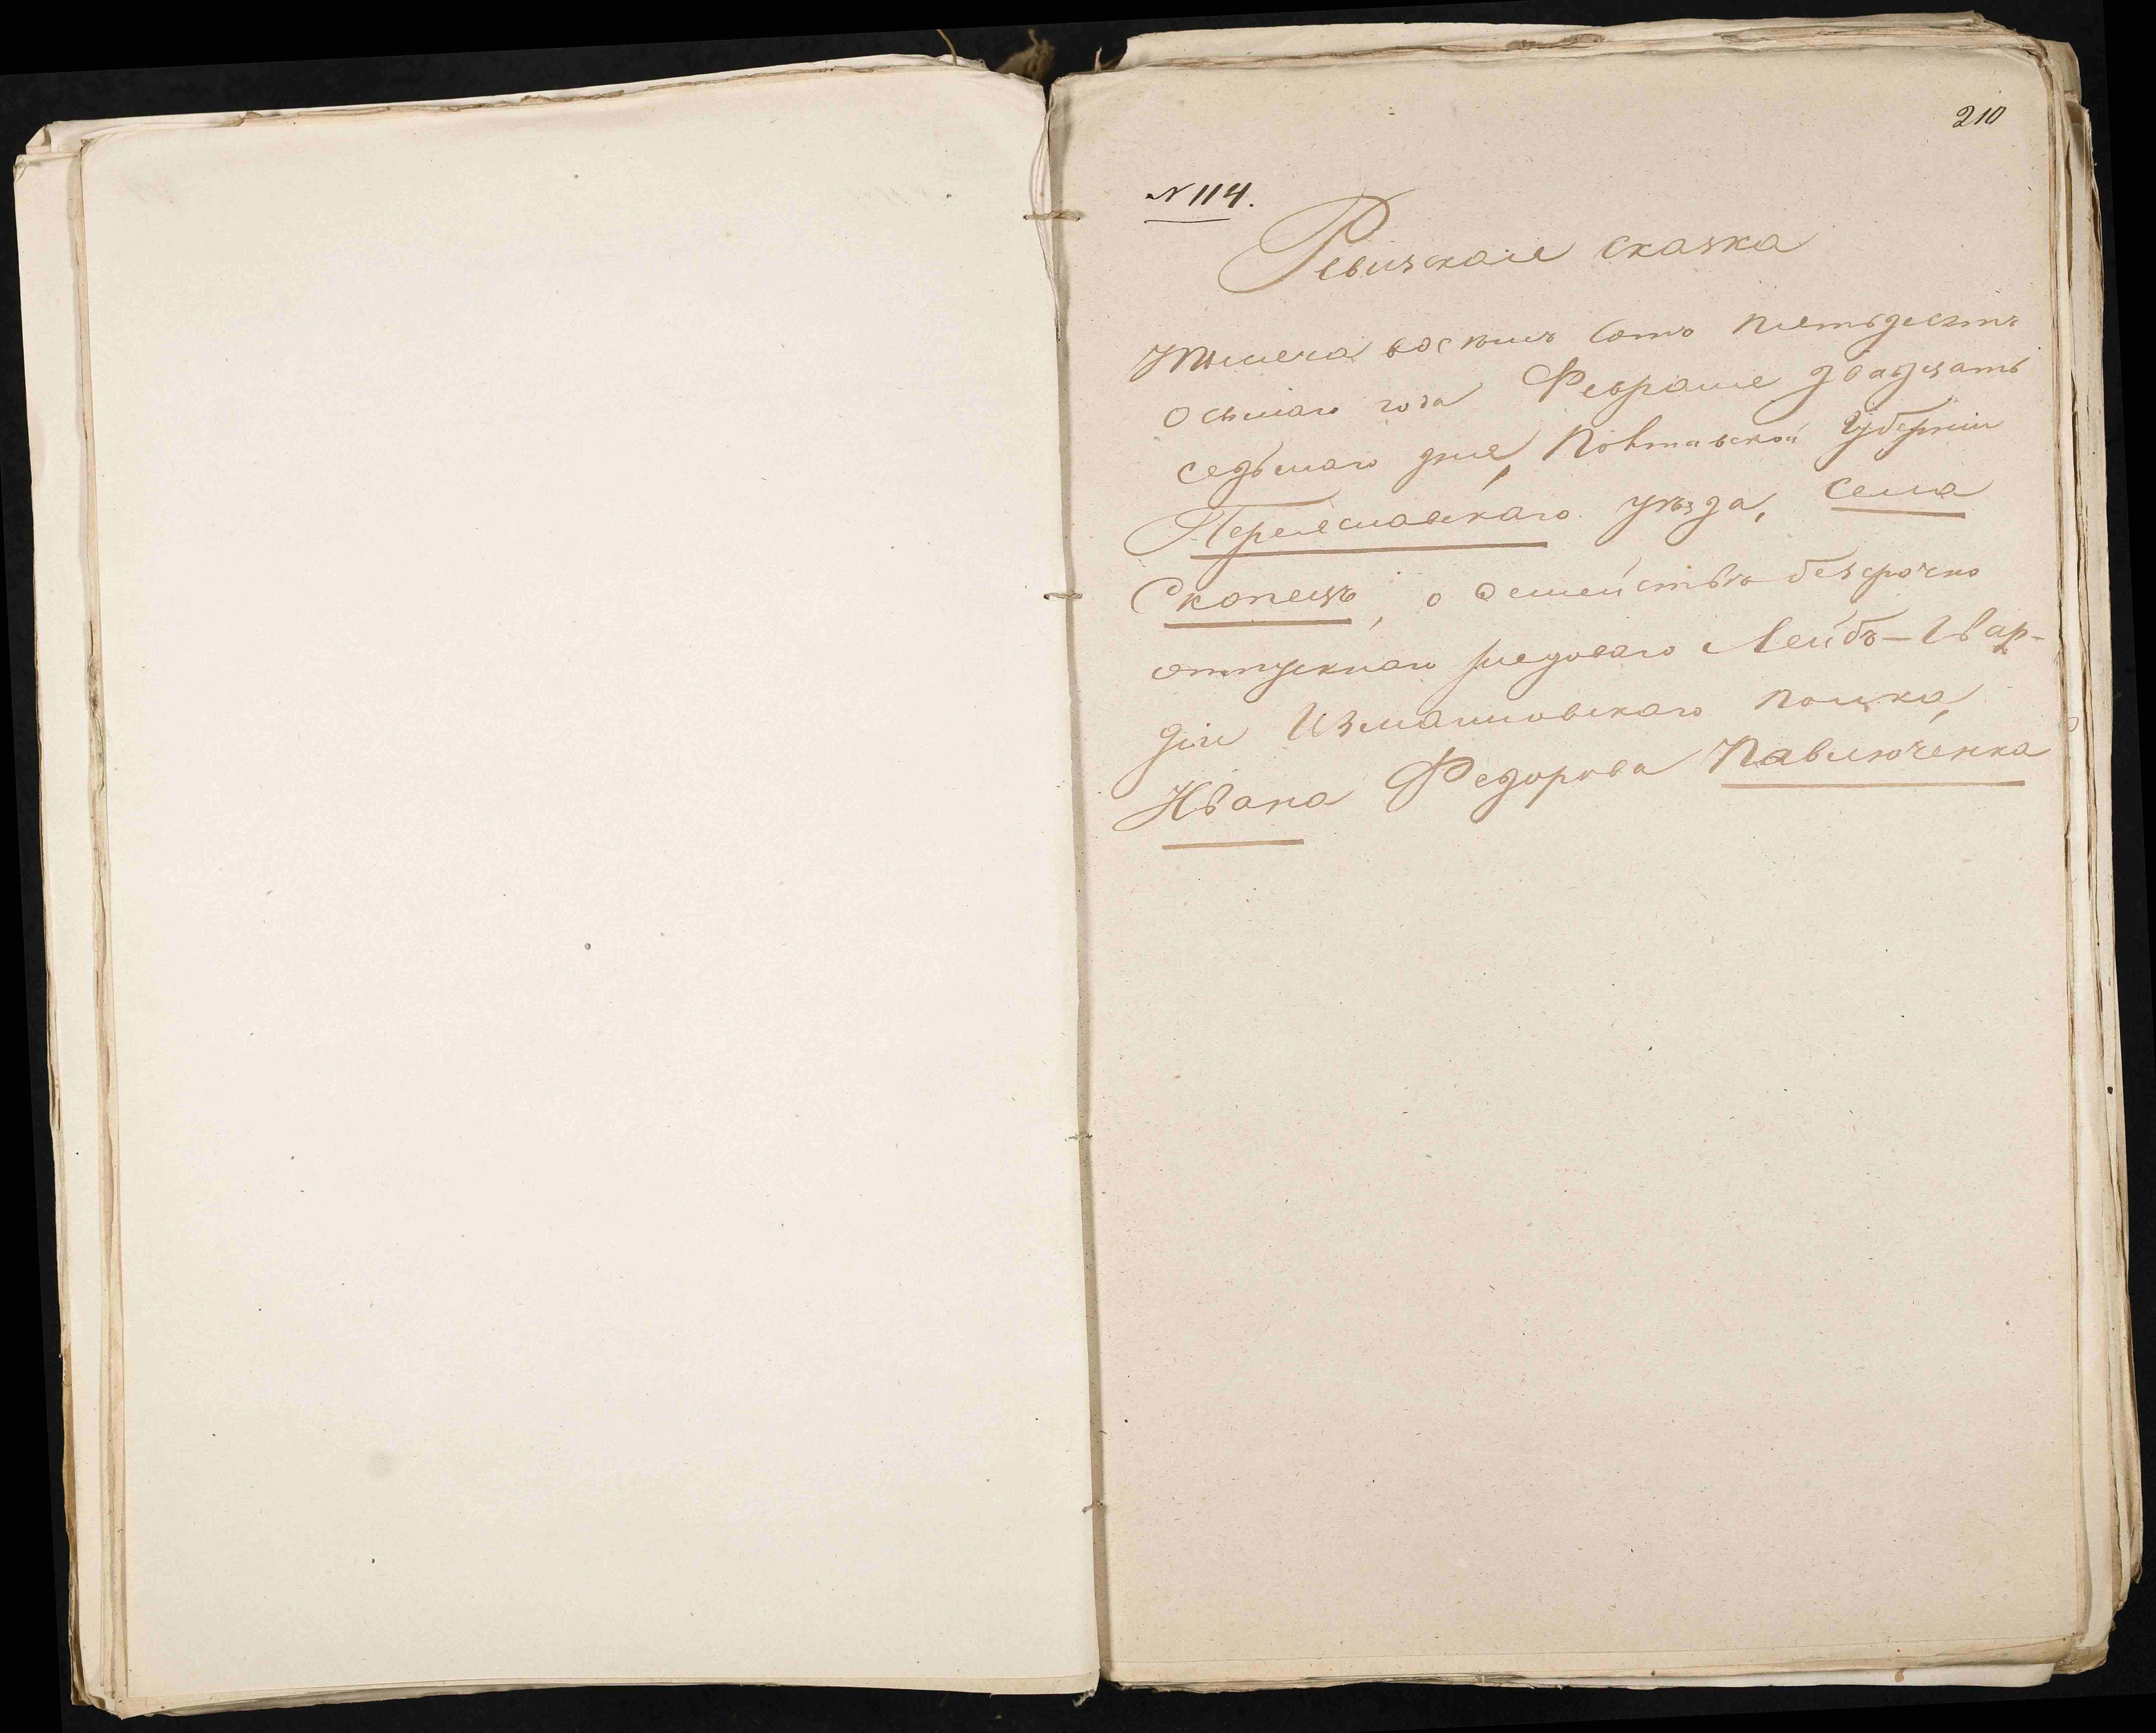 210
N 114.
Ревизская сказка
Тысяча восемь сотъ пятьдесятъ
осьмаго года Февраля двадцать
седьмаго дня, Полтавской Губерніи
Переяславскаго уѣзда, села
Скопецъ, о семействѣ безсрочно
отпускнаго рядоваго Лейбъ-Гвар-
діи Измайловскаго полка,
Ивана Федорова Павлюченка